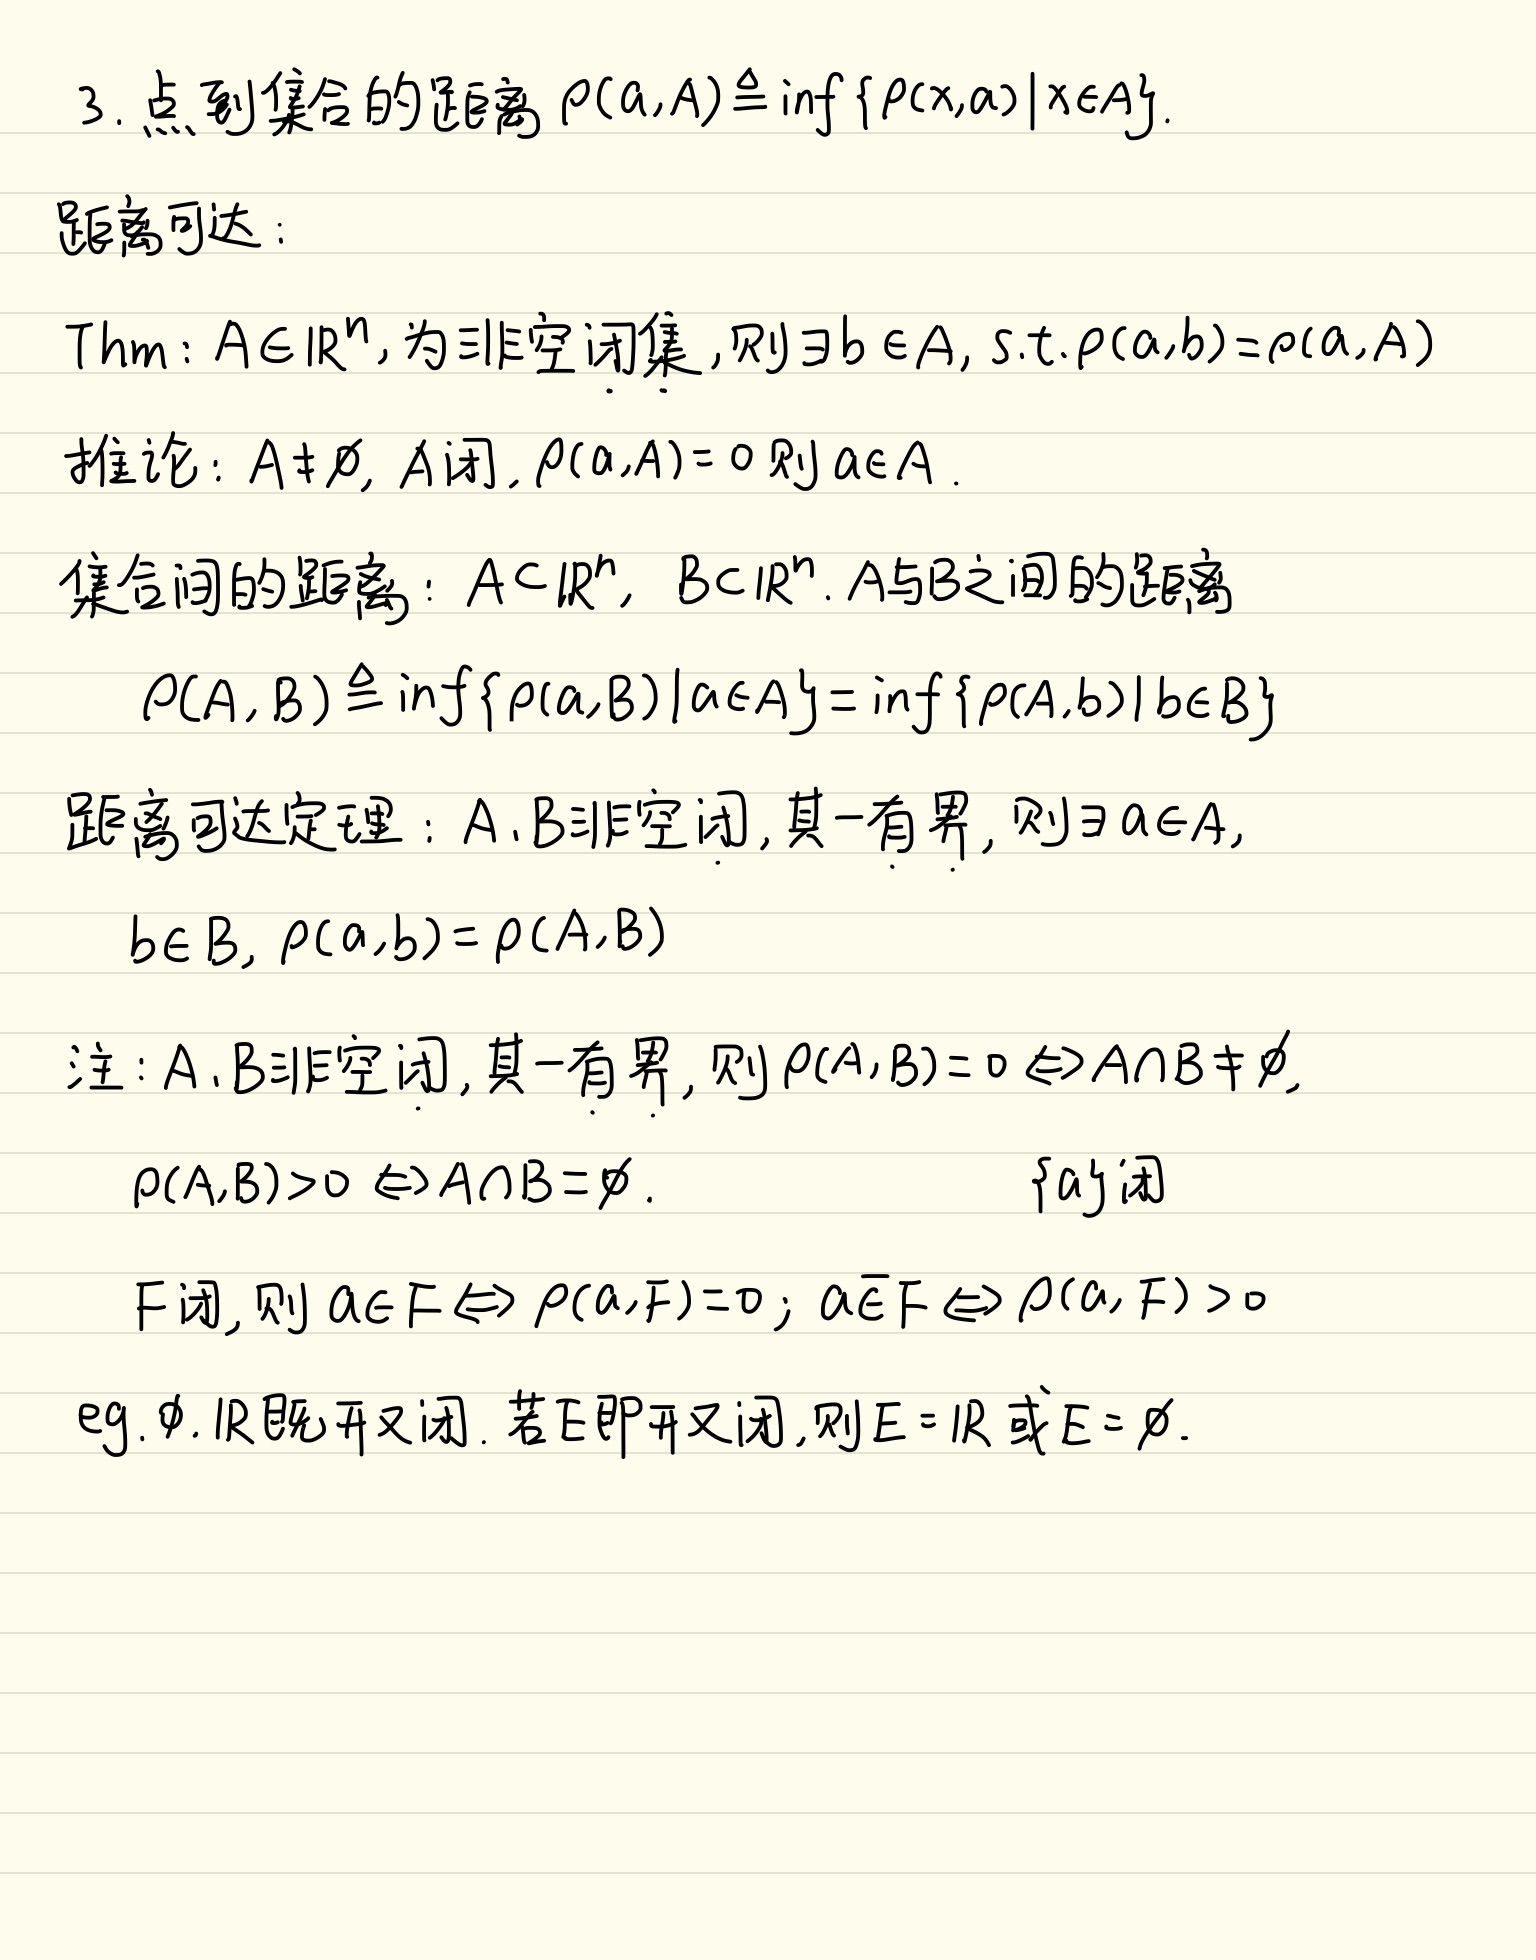 3. 点到集合的距离 ρ(a,A)≜inf{ρ(x,a)|x∈A}.
距离可达:
Thm: A∈ℝⁿ, 为非空闭集, 则∃b∈A, s.t. ρ(a,b)=ρ(a,A)
推论: A≠∅, A闭, ρ(a,A)=0 则 a∈A.
集合间的距离: A⊂ℝⁿ, B⊂ℝⁿ. A与B之间的距离
ρ(A,B)≜inf{ρ(a,B)|a∈A}=inf{ρ(A,b)|b∈B}
距离可达定理: A、B非空闭, 其一有界, 则∃a∈A,
b∈B, ρ(a,b)=ρ(A,B)
注: A、B非空闭, 其一有界, 则 ρ(A,B)=0⇔A∩B≠∅,
ρ(A,B)>0⇔A∩B=∅. {a}闭
F闭, 则 a∈F⇔ρ(a,F)=0; a∈̅F⇔ρ(a,F)>0
eg. ∅. ℝ既开又闭. 若E即开又闭, 则E=ℝ或E=∅.